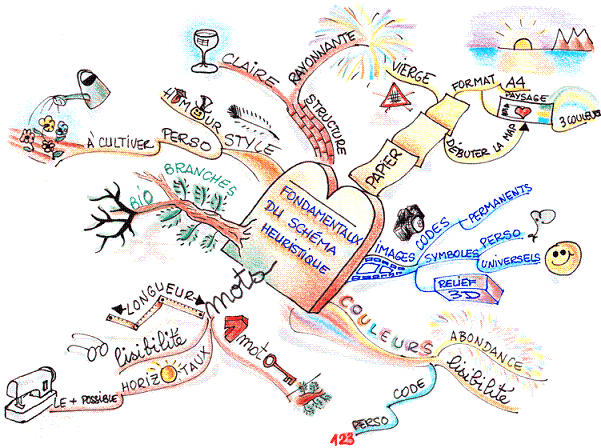 FONDAMENTAUX
DU SCHÉMA
HEURISTIQUE
PAPIER
VIERGE
FORMAT
A4
PAYSAGE
3 COULEURS
DÉBUTER LA MAP
IMAGES
CODES
PERMANENTS
SYMBOLES
PERSO
UNIVERSELS
RELIEF
3D
COULEURS
ABONDANCE
lisibilité
CODE
PERSO
123
mots
LONGUEUR
lisibilité
HORIZ TAUX
LE + POSSIBLE
1 mot
BRANCHES
BIO
STYLE
PERSO
HUMOUR
À CULTIVER
STRUCTURE
RAYONNANTE
CLAIRE